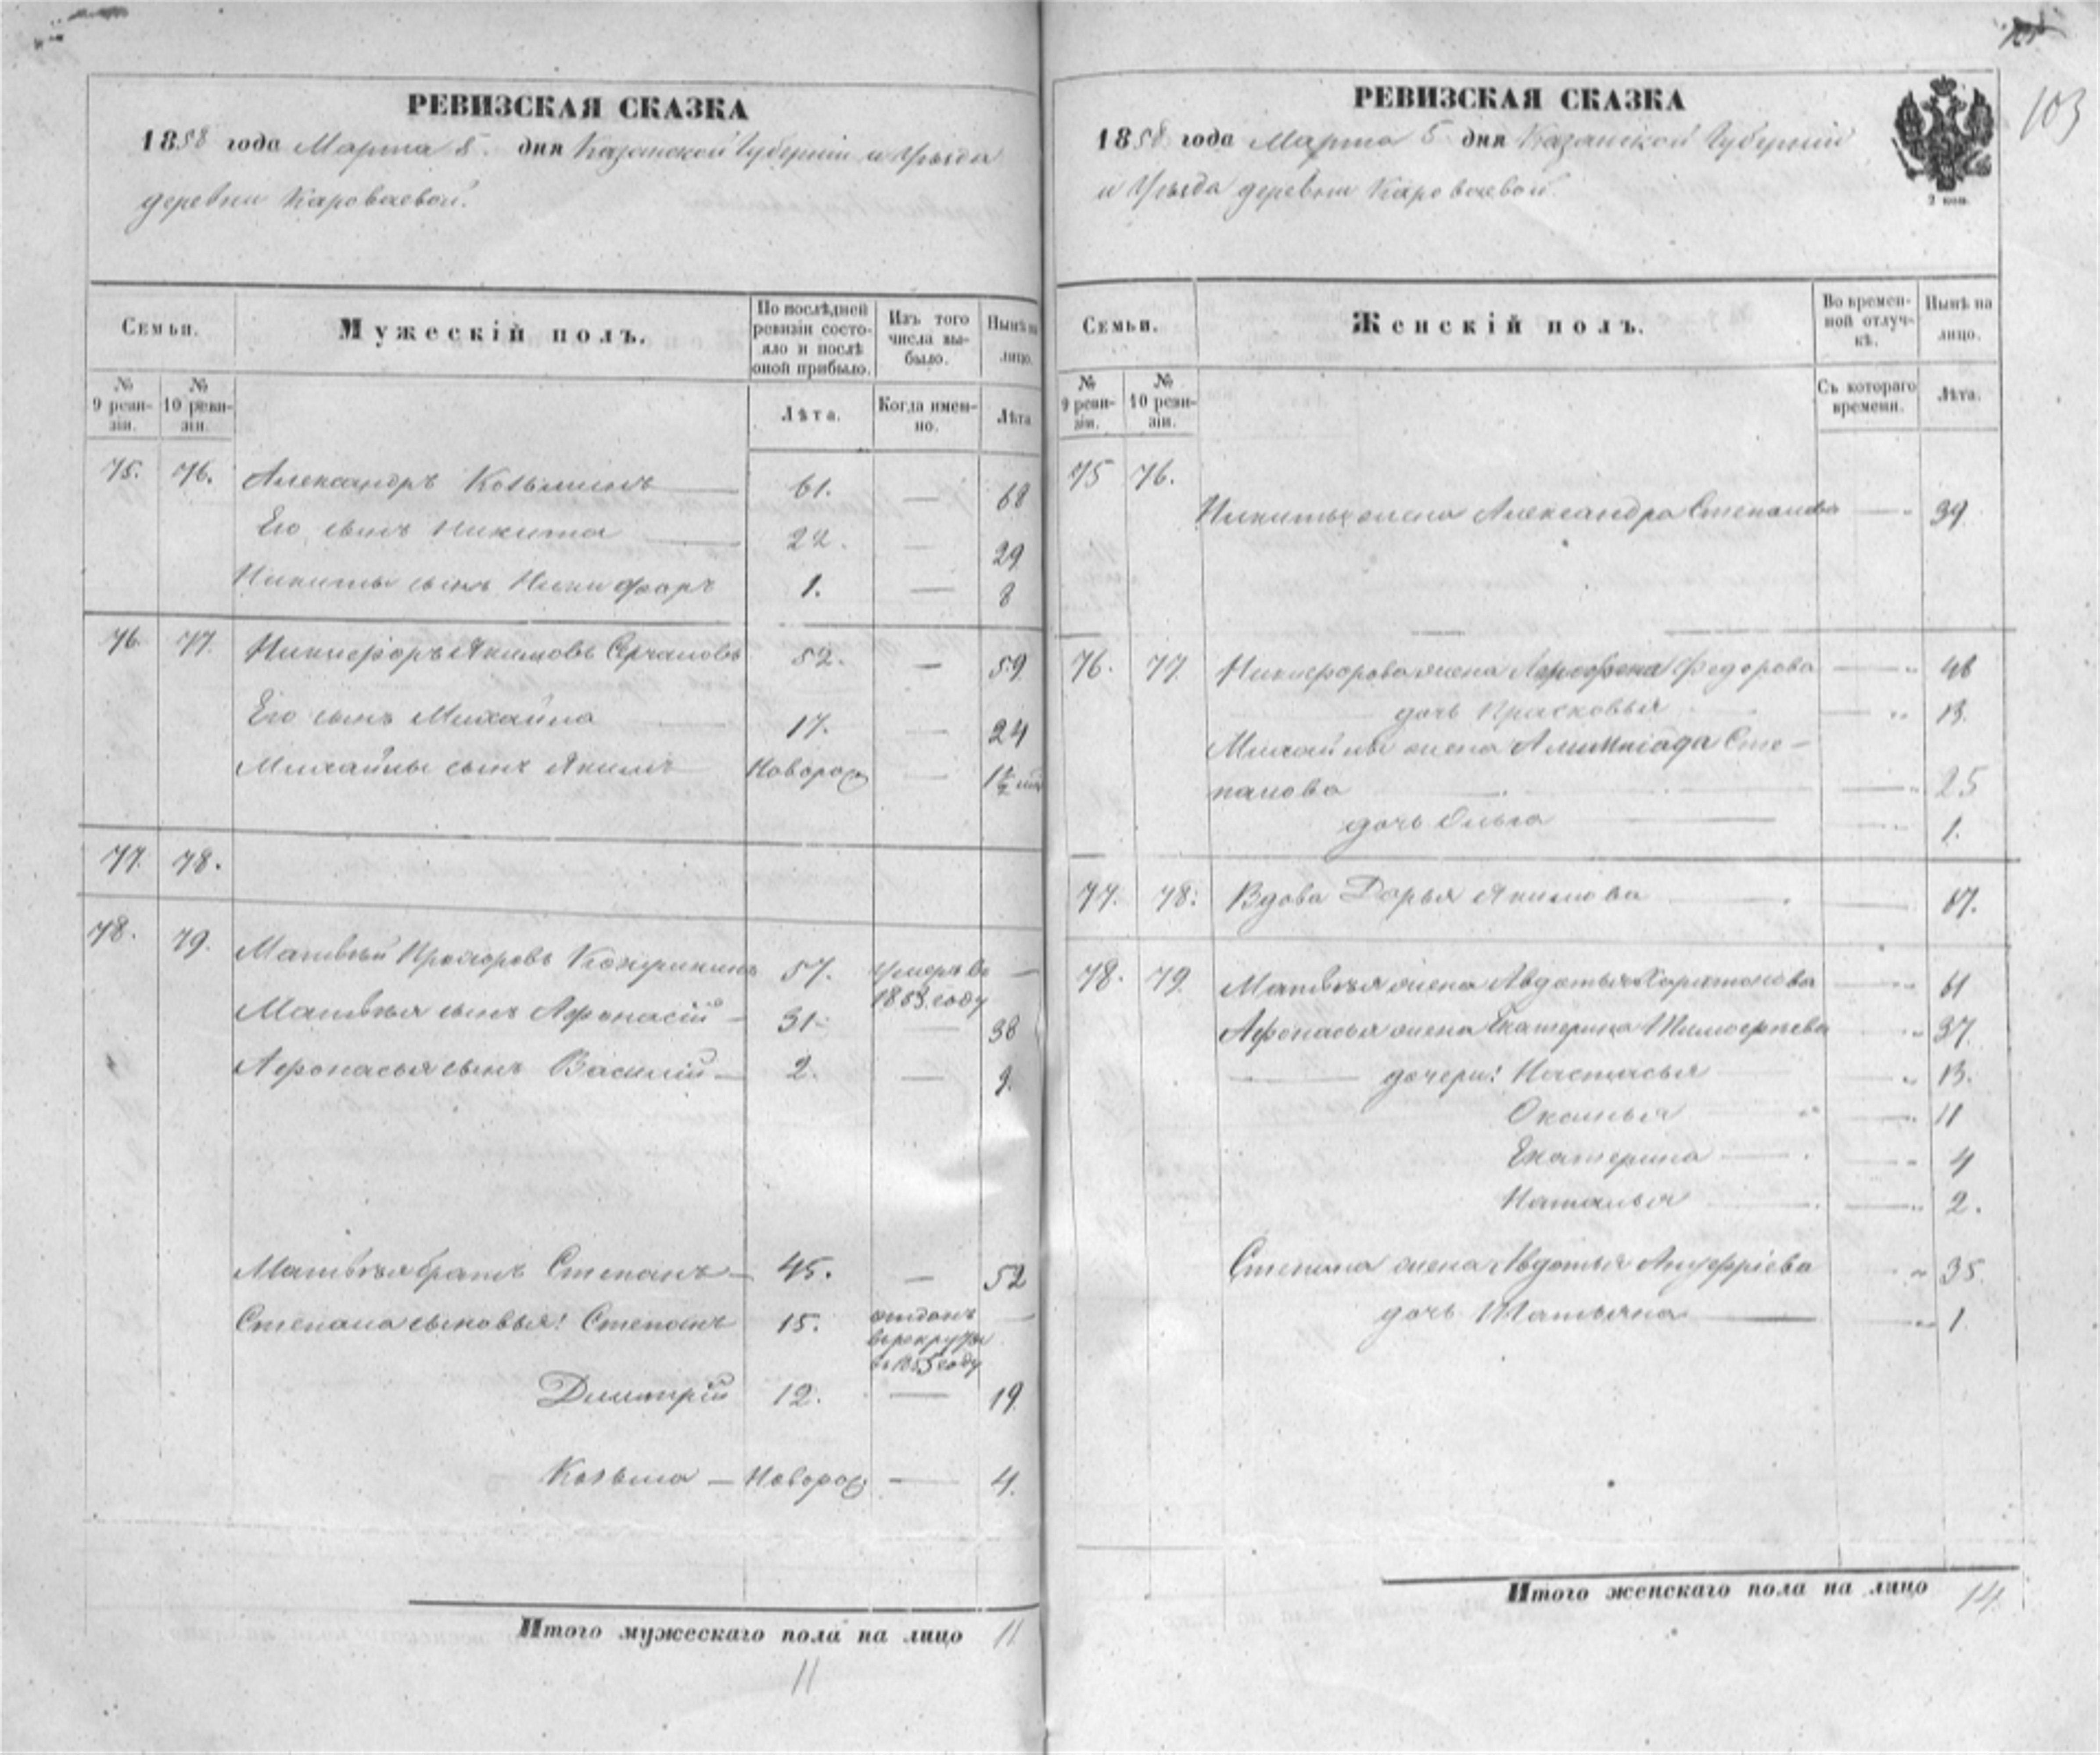 РЕВИЗСКАЯ СКАЗКА
1858 года Марта 5. дня Казанской Губерніи и Уѣзда
деревни Караваевой.
Семьи.
Мужескій полъ.
По послѣдней ревизіи состояло и послѣ оной прибыло.
Изъ того числа выбыло.
Нынѣ на лицо.
№ 9 ревизіи.
№ 10 ревизіи.
Лѣта.
Когда именно.
Лѣта
75. 76. Александръ Козьминъ 61. — 68
Его сынъ Никита 22. — 29
Никиты сынъ Никифоръ 1. — 8
76. 77. Никифоръ Якимовъ 52. — 59
Его сынъ Михайла 17. — 24
Михайлы сынъ Якимъ Новорож —
77. 78.
78. 79. Матвѣй Прохоровъ 57. умеръ въ —
1853 году
Матвѣя сынъ Афонасій 31 — 38
Афонасья сынъ Василій 2. — 9.
Матвѣя братъ Степанъ 45. — 52
Степана сыновья: Степанъ 15. отданъ —
въ рекруты
въ 1855 году
Димитрій 12. — 19
Козьма — Новорож — 4.
Итого мужескаго пола на лицо 11
11
103
РЕВИЗСКАЯ СКАЗКА
1858 года Марта 5 дня Казанской Губерніи
и Уѣзда деревни Караваевой.
2 коп.
Семьи.
Женскій полъ.
Во временной отлучкѣ.
Нынѣ на лицо.
№ 9 ревизіи.
№ 10 ревизіи.
Съ котораго времени.
Лѣта.
75 76.
Никиты жена Александра Степанова — 39
76. 77. Никифорова жена Федорова — 46
дочь Прасковья — 13.
Михайлы жена Сте-
панова — 25
дочь Ольга — 1.
77. 78. Вдова Дарья Якимова — 67.
78. 79. Матвѣя жена Авдотья Харитонова — 61
Афонасья жена Екатерина Тимофеева — 37.
дочери: Настасья — 13.
— 11
Екатерина — 4
Наталья — 2.
Степана жена Авдотья — 35.
дочь Татьяна — 1
Итого женскаго пола на лицо 14.